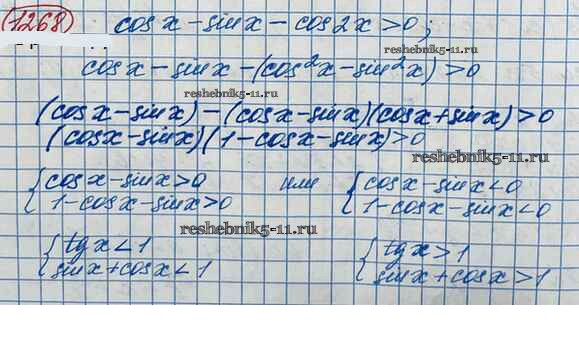 1268 cos x - sin x - cos 2x > 0;
reshebnik5-11.ru
cos x - sin x - (cos²x - sin²x) > 0
reshebnik5-11.ru
(cos x - sin x) - (cos x - sin x)(cos x + sin x) > 0
(cos x - sin x)(1 - cos x - sin x) > 0
reshebnik5-11.ru
{ cos x - sin x > 0 или { cos x - sin x < 0
1 - cos x - sin x > 0 1 - cos x - sin x < 0
reshebnik5-11.ru
{ tg x < 1 { tg x > 1
sin x + cos x < 1 sin x + cos x > 1